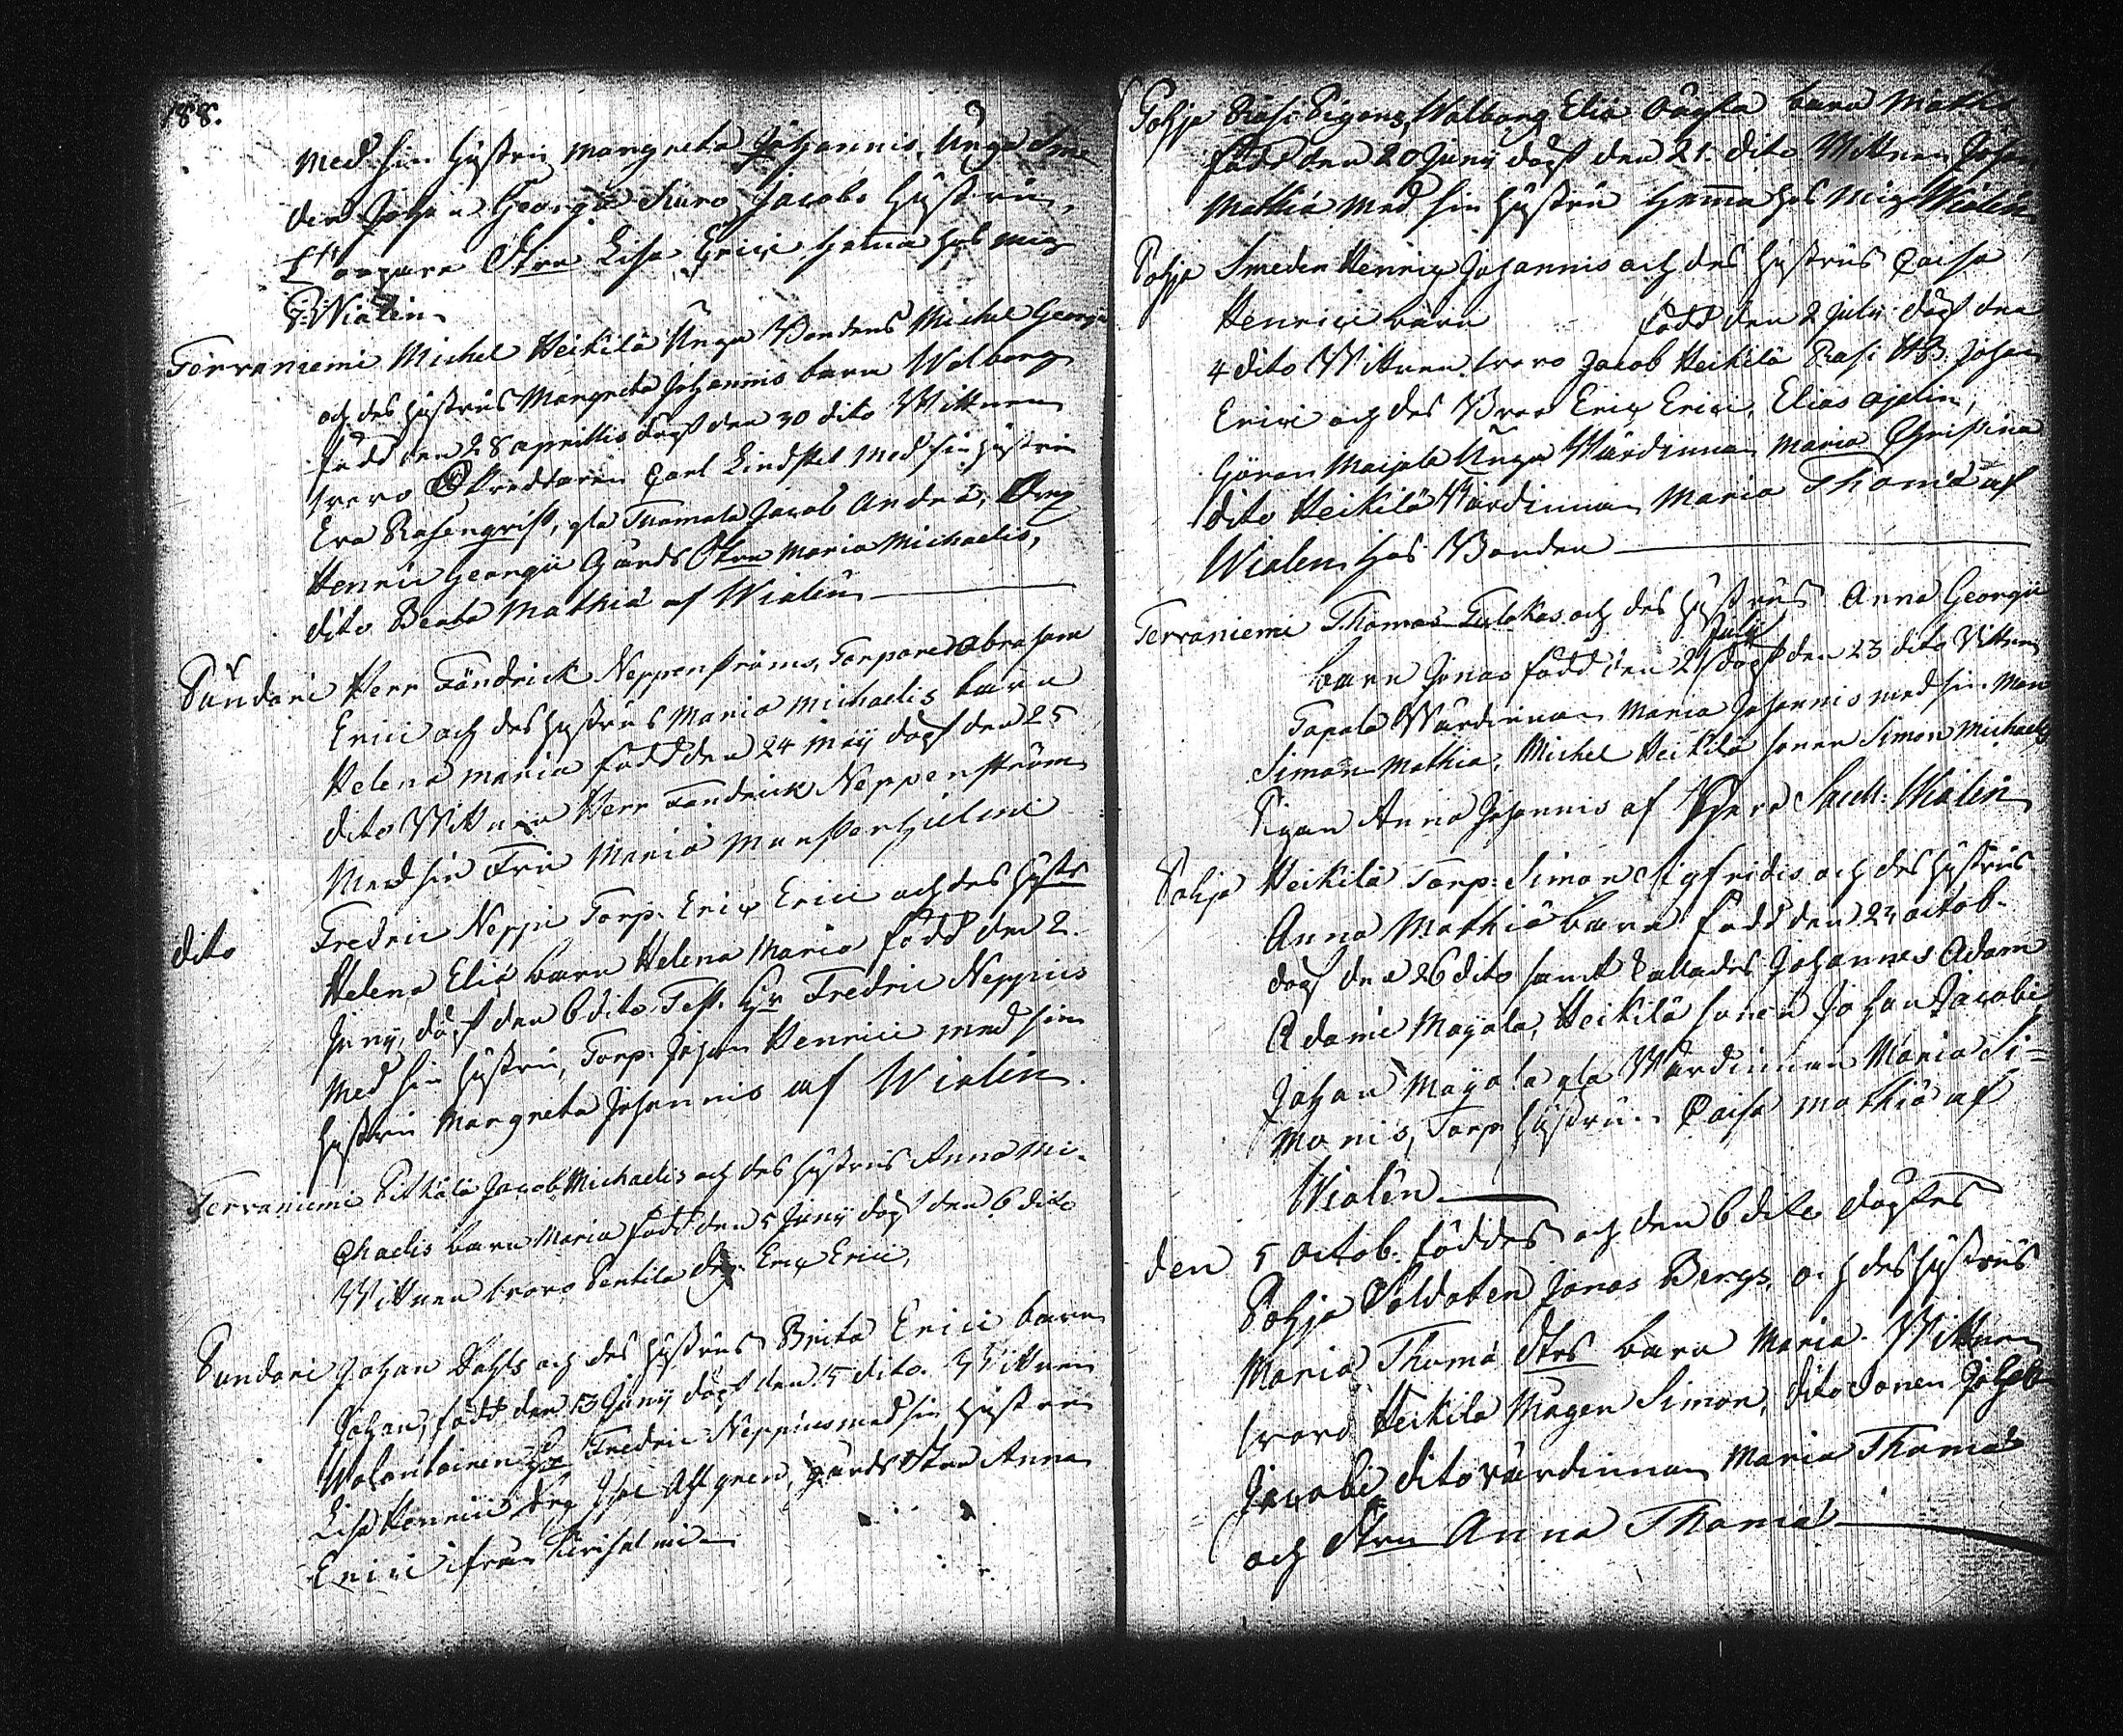 188.
med sin hustru Margreta Johannis, Unga Sme-
den Johan Georgii Juro Jacobs hustru,
Ltorpare Dtra Lisa Erici hemma hos mig
Wialén
Terraniemi Michel Heikilä Unga Bondens Michel Georgii
och des hustrus Margreta Johannis barn Walborg
född den 28 aprillis döpt den 30 dito Wittnen
woro Skreddaren Carl Lindstel med sin hustru
Eva Rosenqvist, gla Thomala Jacob Andreæ, Drg
Henric Georgii Gårds Dtra Maria Michaelis,
dito Beata Mathiæ af Wialén
Sundari Herr Fändrick Neppenströms, Torpare Abraham
Erici och des hustrus Maria Michaelis barn
Helena Maria född den 24 Maij döpt den 25
dito Wittnen Herr Fändrick Neppenström
Med sin Fru Maria Munsterhielm
dito Fredric Neppii Torp. Eric Erici och des hustrs
Helena Eliæ barn Helena Maria född den 2.
Junij, döpt den 6 dito Test. Hr Fredric Neppius
Med sin hustru, Torp. Johan Henrici med sin
hustru Margreta Johannis af Wialén.
Terraniemi Pitkälä Jacob Michaelis och des hustrus Anna Mi-
chaelis barn Maria född den 5 Junij döpt den 6 dito
Wittnen woro Pentila Drg. Eric Erici,
Sundari Johan Dahls och des hustrus Brita Erici barn
Johan, född den 13 Junij döpt den 15 dito. Wittnen
Volontairen Hr Fredric Neppius med sin hustru
Lisa Henrici Drg Isac Ahlgren, gårds Dtra Anna
Erici ifrån
Pohja Räsi Pigans, Walborg Eliæ oägta barn Mathias
född den 20 Junij döpt den 21. dito Wittnen Johan
Mathiæ med sin hustru hemma hos mig Wialén
Pohja Smeden Henric Johannis och des hustrus Caisa
Henrici barn född den 2 Julij döpt den
4 dito Wittnen woro Jacob Heikilä Räsi HB. Johan
Erici och des Bror Eric Erici, Elias ajalin,
Göran Maijala Unga Wärdinnan Maria Christina
dito Heikilä Wärdinnan Maria Thomæ af
Wialén hos Bonden
Terraniemi Thomas Tulokas och des hustrus Anna Georgii
Julij
barn Jonas född den 21 döpt den 23 dito Wittnen
Tapala Wärdinnan Maria Johannis med sin Man
Simon Mathiæ, Michel Heikilä sonen Simon Michaelis
Pigan Anna Johannis af Herr Sacell. Wialén
Pohja Heikilä Torp. Simon Sigfridis och des hustrus
Anna Mathiæ barn född den 23 octob.
döpt den 26 dito samt kallades Johannes Adam
Adami Mayala, Heikilä sonen Johan Jacobi
Johan Mayala gla Wärdinnan Maria Si=
monis, Torp. hustrun Caisa Mathiæ af
Wialén
den 5 octob. föddes och den 6 dito döptes
Pohja Soldaten Jonas Bergs, och des hustrus
Maria Thomæ Dtrs barn Maria. Wittnen
woro Heikila Mågen Simon, dito sonen
Jacobi dito värdinnan Maria Thomæ
och Dtrn Anna Thomæ